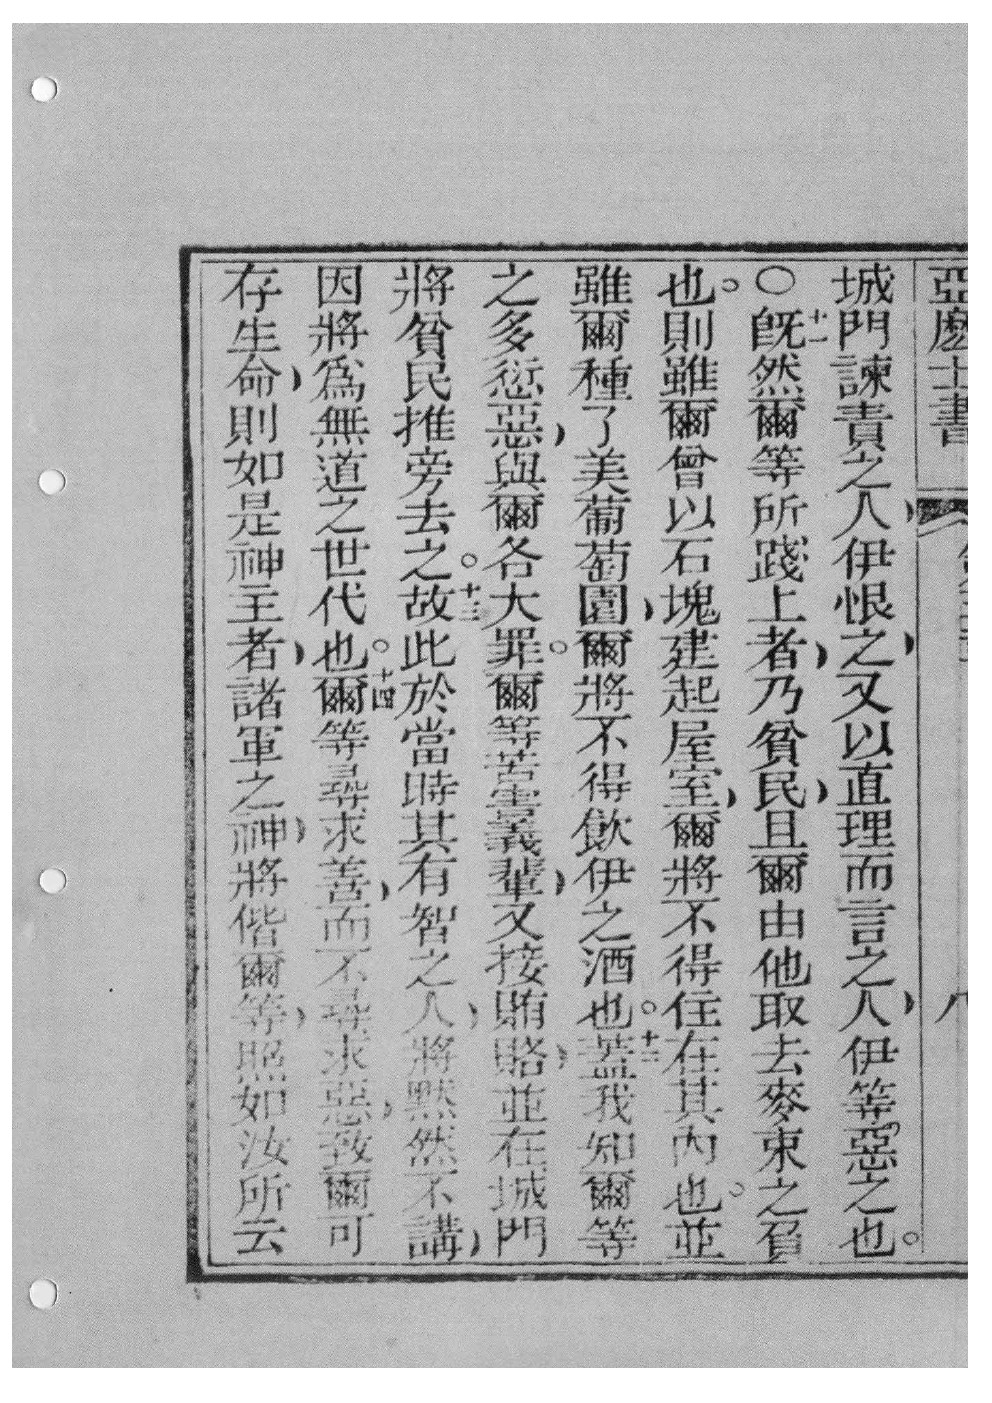 亞麽士書 八
城門諫責之人伊恨之又以直理而言之人伊等惡之也。
○十一既然爾等所踐上者乃貧民且爾由他取去麥束之負
也。則雖爾曾以石塊建起屋室爾將不得住在其內也並
雖爾種了美葡萄園爾將不得飲伊之酒也。十二蓋我知爾等
之多愆惡與爾各大罪。爾等苦害義輩又接賄賂並在城門
將貧民推旁去之。十三故此於當時其有智之人將默然不講
因將爲無道之世代也。十四爾等尋求善而不尋求惡致爾可
存生命則如是神主者諸軍之神將偕爾等照如汝所云